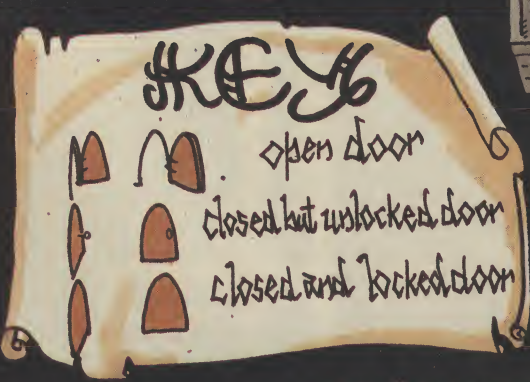 KEY
open door
closed but unlocked door
closed and locked door